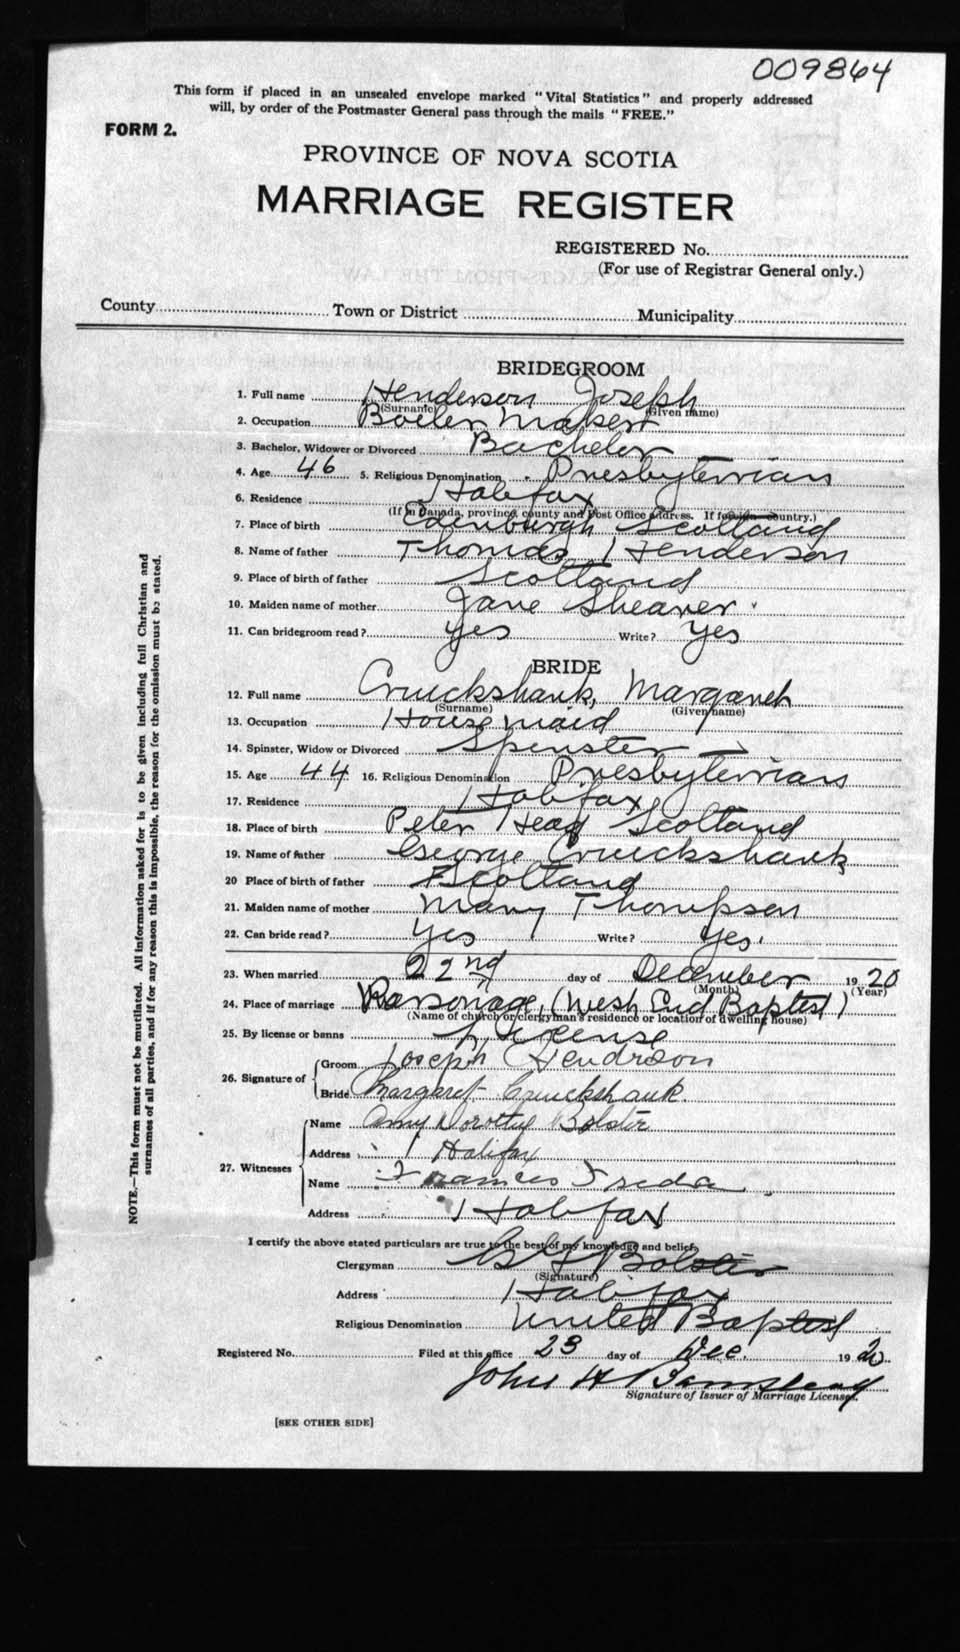 009864
This form if placed in an unsealed envelope marked "Vital Statistics" and properly addressed
will, by order of the Postmaster General pass through the mails "FREE."
FORM 2.
PROVINCE OF NOVA SCOTIA
MARRIAGE REGISTER
REGISTERED No.
(For use of Registrar General only.)
County Town or District Municipality
BRIDEGROOM
1. Full name Henderson Joseph
(Surname) (Given name)
2. Occupation Boiler Maker
3. Bachelor, Widower or Divorced Bachelor
4. Age 46 5. Religious Denomination Presbyterian
6. Residence Halifax
(If in Canada, province, county and Post Office address. If foreign country.)
7. Place of birth Edinburgh Scotland
8. Name of father Thomas Henderson
9. Place of birth of father Scotland
10. Maiden name of mother Jane Shearer
11. Can bridegroom read? Yes Write? Yes
BRIDE
12. Full name Cruickshank, Margaret
(Surname) (Given name)
13. Occupation Housemaid
14. Spinster, Widow or Divorced Spinster
15. Age 44 16. Religious Denomination Presbyterian
17. Residence Halifax
18. Place of birth Peter Head Scotland
19. Name of father George Cruickshank
20 Place of birth of father Scotland
21. Maiden name of mother Mary Thompson
22. Can bride read? Yes Write? Yes.
23. When married 22nd day of December 1920
(Month) (Year)
24. Place of marriage Parsonage, (West End Baptist)
(Name of church or clergyman's residence or location of dwelling house)
25. By license or banns License
26. Signature of Groom Joseph Hendrson
Bride Margaret Cruickshank.
27. Witnesses Name Amy Dorothy Bolster
Address Halifax
Name Frances Freda
Address Halifax
I certify the above stated particulars are true to the best of my knowledge and belief.
Clergyman Bolster
(Signature)
Address Halifax
Religious Denomination United Baptist
Registered No. Filed at this office 23 day of Dec. 1920.
John H
Signature of Issuer of Marriage Licenses.
[SEE OTHER SIDE]
NOTE.—This form must not be mutilated. All information asked for is to be given including full Christian and
surnames of all parties, and if for any reason this is impossible, the reason for the omission must be stated.